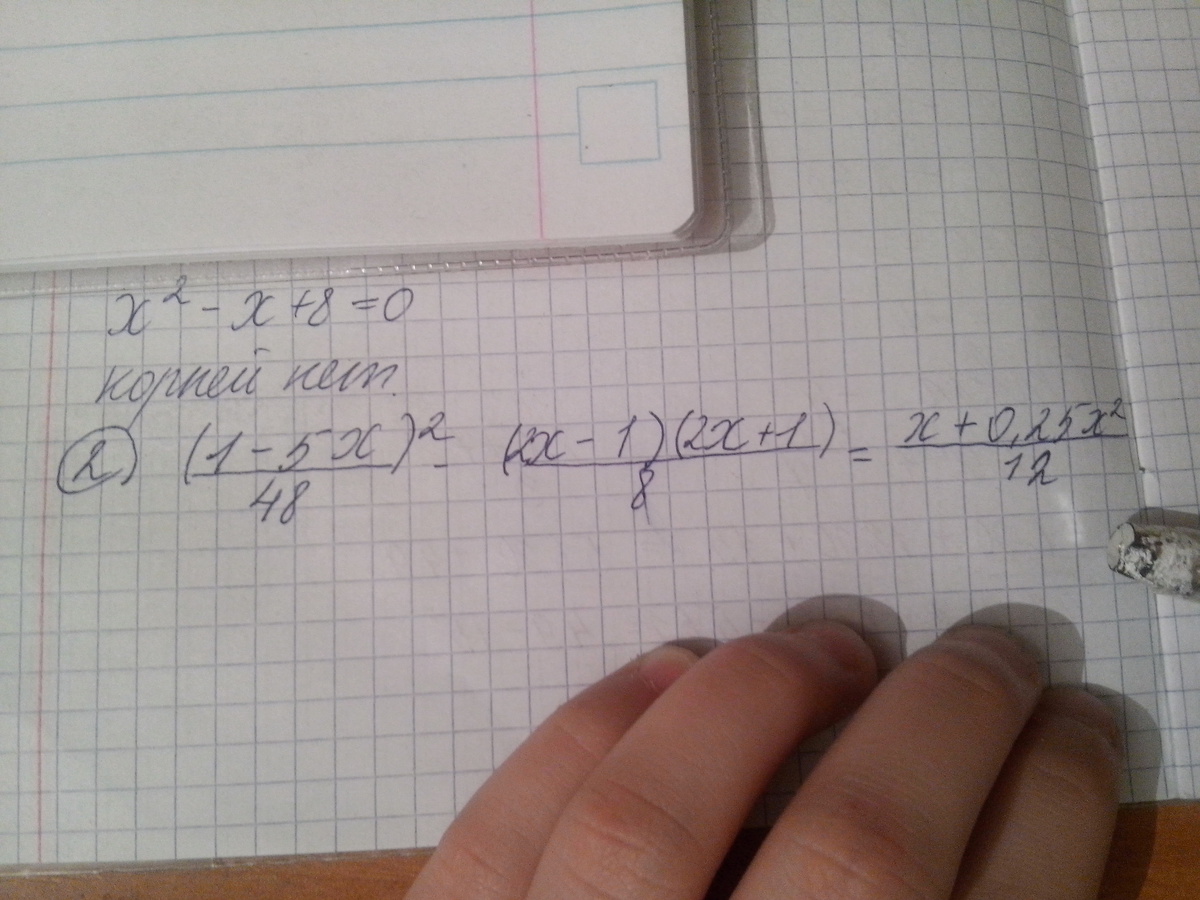 x² - x + 8 = 0
корней нет.
2) (1 - 5x)²/48 - (2x - 1)(2x + 1)/8 = x + 0,25x²/12